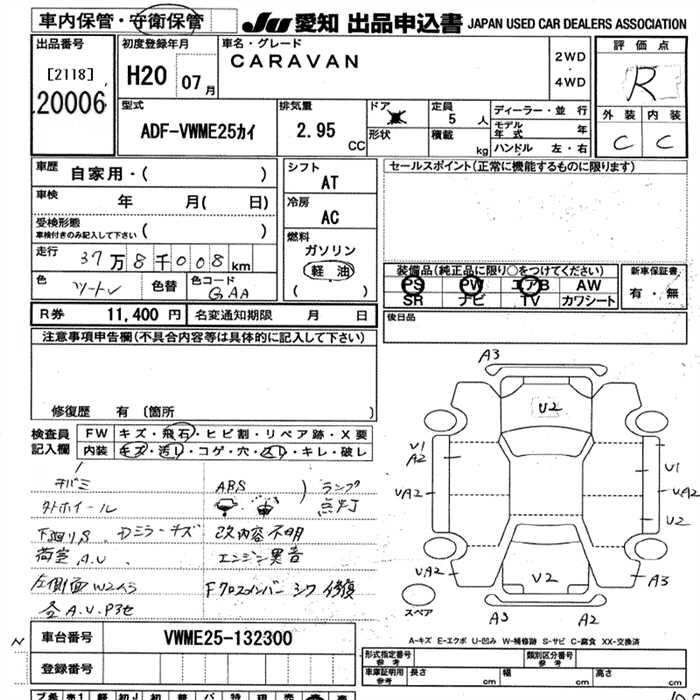 車内保管・守衛保管
JU 愛知 出品申込書 JAPAN USED CAR DEALERS ASSOCIATION
出品番号
[2118]
20006
初度登録年月
H20 07月
車名・グレード
CARAVAN
2WD
・
4WD
評価点
R
外装 内装
C C
型式
ADF-VWME25カイ
排気量
2.95 CC
ドア
形状
定員
5 人
積載 kg
ディーラー・並行
モデル年式 年
ハンドル 左・右
車歴 自家用・( )
車検 年 月( 日)
受検形態
車検付きのみ記入して下さい ( )
走行 37万8千008km
色 ツートン 色替 色コード GAA
シフト
AT
冷房
AC
燃料
ガソリン
軽油
( )
セールスポイント(正常に機能するものに限ります)
装備品(純正品に限り○をつけてください)
PS PW エアB AW
SR ナビ TV カワシート
新車保証書
有・無
後日品
R券 11,400 円 名変通知期限 月 日
注意事項申告欄(不具合内容等は具体的に記入して下さい)
修復歴 有〔箇所 〕
検査員記入欄
FW キズ・飛石・ヒビ割・リペア跡・X要
内装 キズ・汚レ・コゲ・穴・スレ・キレ・破レ
ABS ランプ点灯
外ホイール
下廻りS Dミラーキズ 改内容不明
荷室A.U. エンジン異音
左側面W2スラ Fクロスメンバー シワ 修復
各A.U.P3セ
A3
U2
U1
A2
U1
UA2
UA2
U2
UA2
A3
U2
A3 A2
スペア
A-キズ E-エクボ U-凹み W-補修跡 S-サビ C-腐食 XX-交換済
車台番号 VWME25-132300
登録番号
形式指定番号
参考
類別区分番号
参考
車庫証明用
参考
長さ cm 幅 cm 高さ cm